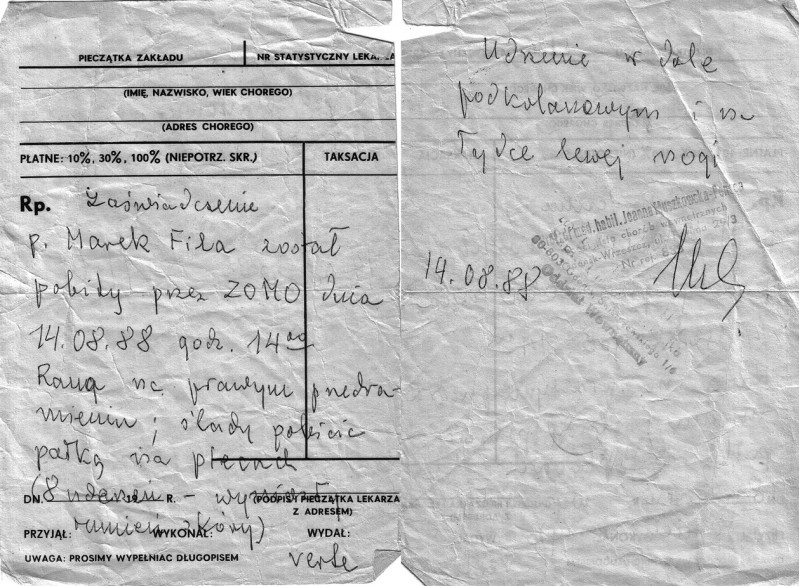 PIECZĄTKA ZAKŁADU
NR STATYSTYCZNY
(IMIĘ, NAZWISKO, WIEK CHOREGO)
(ADRES CHOREGO)
PŁATNE: 10%, 30%, 100% (NIEPOTRZ. SKR.)
TAKSACJA
Rp. Zaświadczenie
p. Marek Fila został
pobity przez ZOMO dnia
14.08.88 godz. 14 00
Rana na prawym przedra-
mieniu; ślady pobicia
pałką na plecach
(8 uderzeń -
DN. 19 R.
(PODPIS I PIECZĄTKA LEKARZA
Z ADRESEM)
rumień skóry)
PRZYJĄŁ: WYKONAŁ: WYDAŁ:
UWAGA: PROSIMY WYPEŁNIAĆ DŁUGOPISEM
verte
Uderzenie w dole
podkolanowym i na
łydce lewej nogi
med. habil. Joanna
14.08.88
Nr rej.
Oddział Wewnętrzny